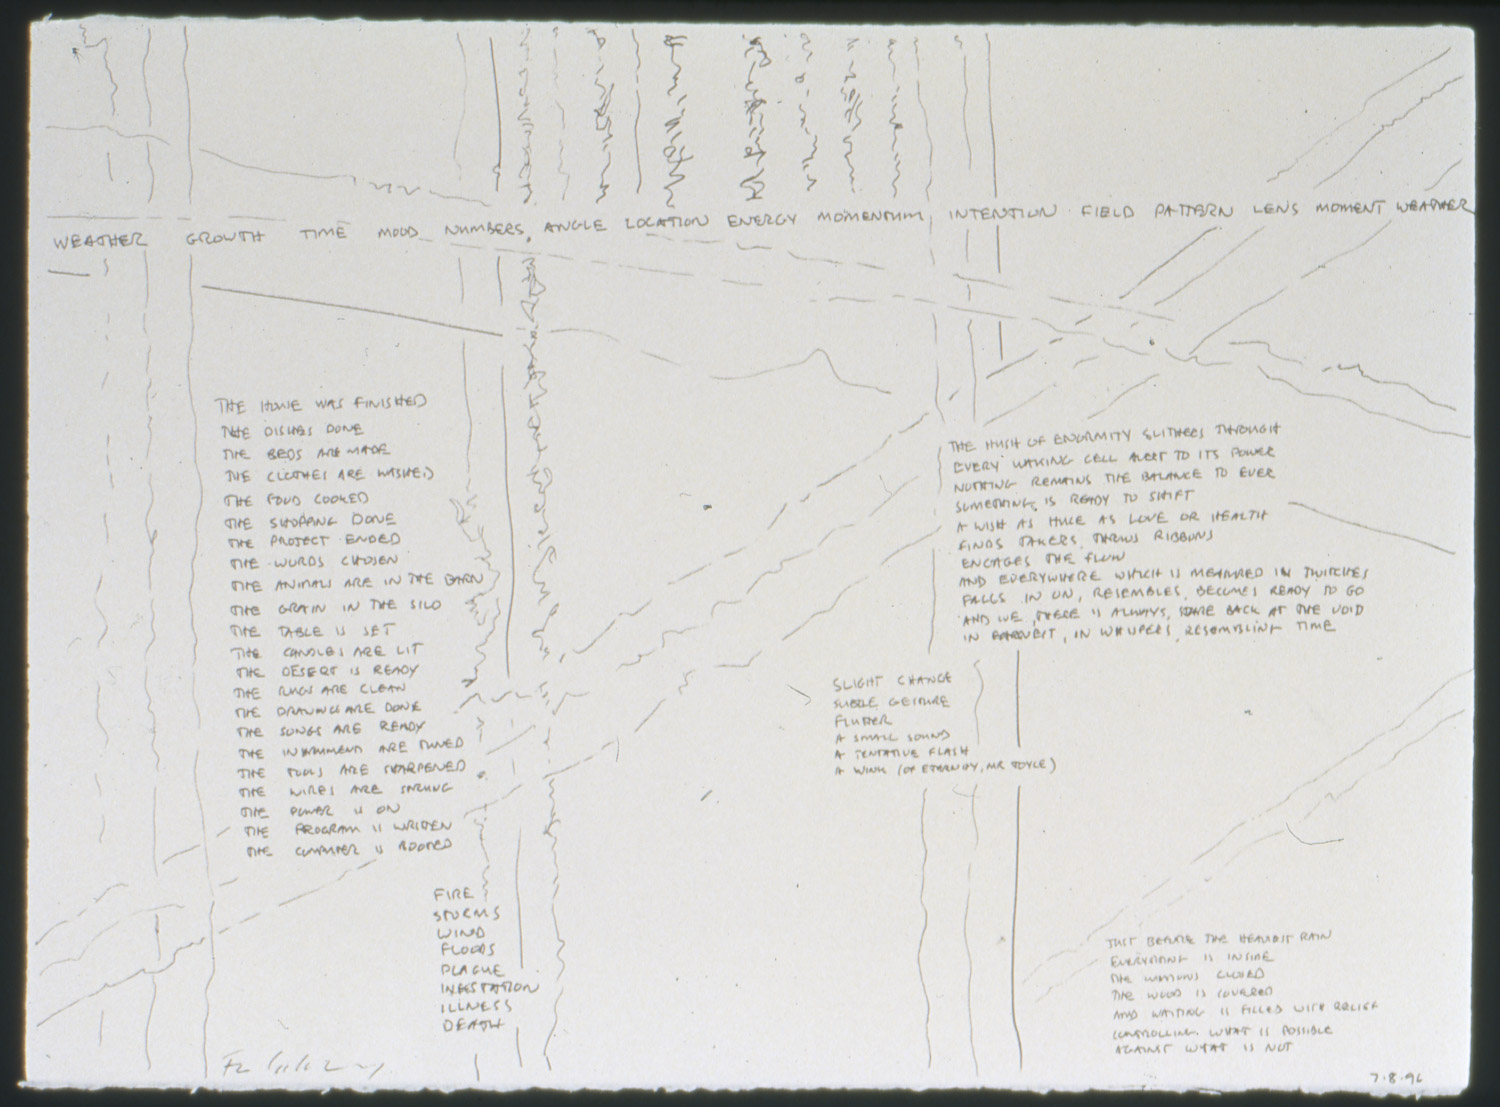 WEATHER GROWTH TIME MOOD NUMBERS, ANGLE LOCATION ENERGY MOMENTUM, INTENTION FIELD PATTERN LENS MOMENT WEATHER
THE HOME WAS FINISHED
THE DISHES DONE
THE BEDS ARE MADE
THE CLOTHES ARE WASHED
THE FOOD COOKED
THE SHOPPING DONE
THE PROJECT ENDED
THE WORDS CHOSEN
THE ANIMALS ARE IN THE BARN
THE GRAIN IN THE SILO
THE TABLE IS SET
THE CANDLES ARE LIT
THE DESERT IS READY
THE RUGS ARE CLEAN
THE DRAWINGS ARE DONE
THE SONGS ARE READY
THE INSTRUMENTS ARE TUNED
THE TOOLS ARE SHARPENED
THE WIRES ARE STRUNG
THE POWER IS ON
THE PROGRAM IS WRITTEN
THE COMPUTER IS BOOTED
FIRE
STORMS
WIND
FLOODS
PLAGUE
INFESTATION
ILLNESS
DEATH
THE HUSH OF ENORMITY SLITHERS THROUGH
EVERY WAKING CELL ALERT TO ITS POWER
NOTHING REMAINS THE BALANCE TO EVER
SOMETHING IS READY TO SHIFT
A WISH AS HUGE AS LOVE OR HEALTH
FINDS TAKERS, THROWS RIBBONS
ENGAGES THE FLOW
AND EVERYWHERE WHICH IS MEASURED IN TWITCHES
FALLS IN ON, RESEMBLES, BECOMES READY TO GO
AND WE, THERE IS ALWAYS, STARE BACK AT THE VOID
IN, IN WHISPERS, RESEMBLING TIME
SLIGHT CHANGE
SUBTLE GESTURE
FLUTTER
A SMALL SOUND
A TENTATIVE FLASH
A WINK (OF ETERNITY, MR JOYCE)
JUST BEFORE THE HEAVIEST RAIN
EVERYTHING IS INSIDE
THE WINDOWS CLOSED
THE WOOD IS COVERED
AND WAITING IS FILLED WITH RELIEF
CONTROLLING WHAT IS POSSIBLE
AGAINST WHAT IS NOT
7.8.96